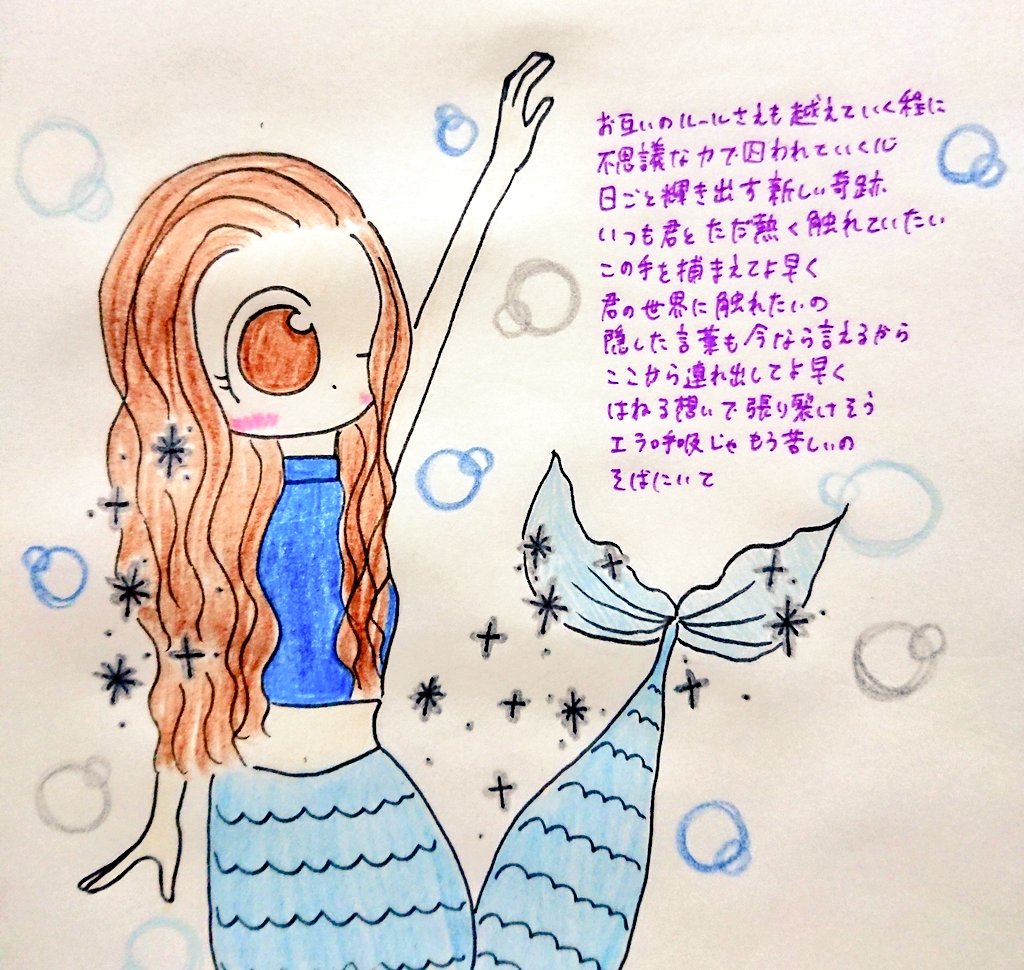 お互いのルールさえも越えていく程に
不思議な力で囚われていく心
日ごと輝き出す新しい奇跡
いつも君とただ熱く触れていたい
この手を捕まえてよ早く
君の世界に触れたいの
隠した言葉も今なら言えるから
ここから連れ出してよ早く
はねる想いで張り裂けそう
エラ呼吸じゃもう苦しいの
そばにいて